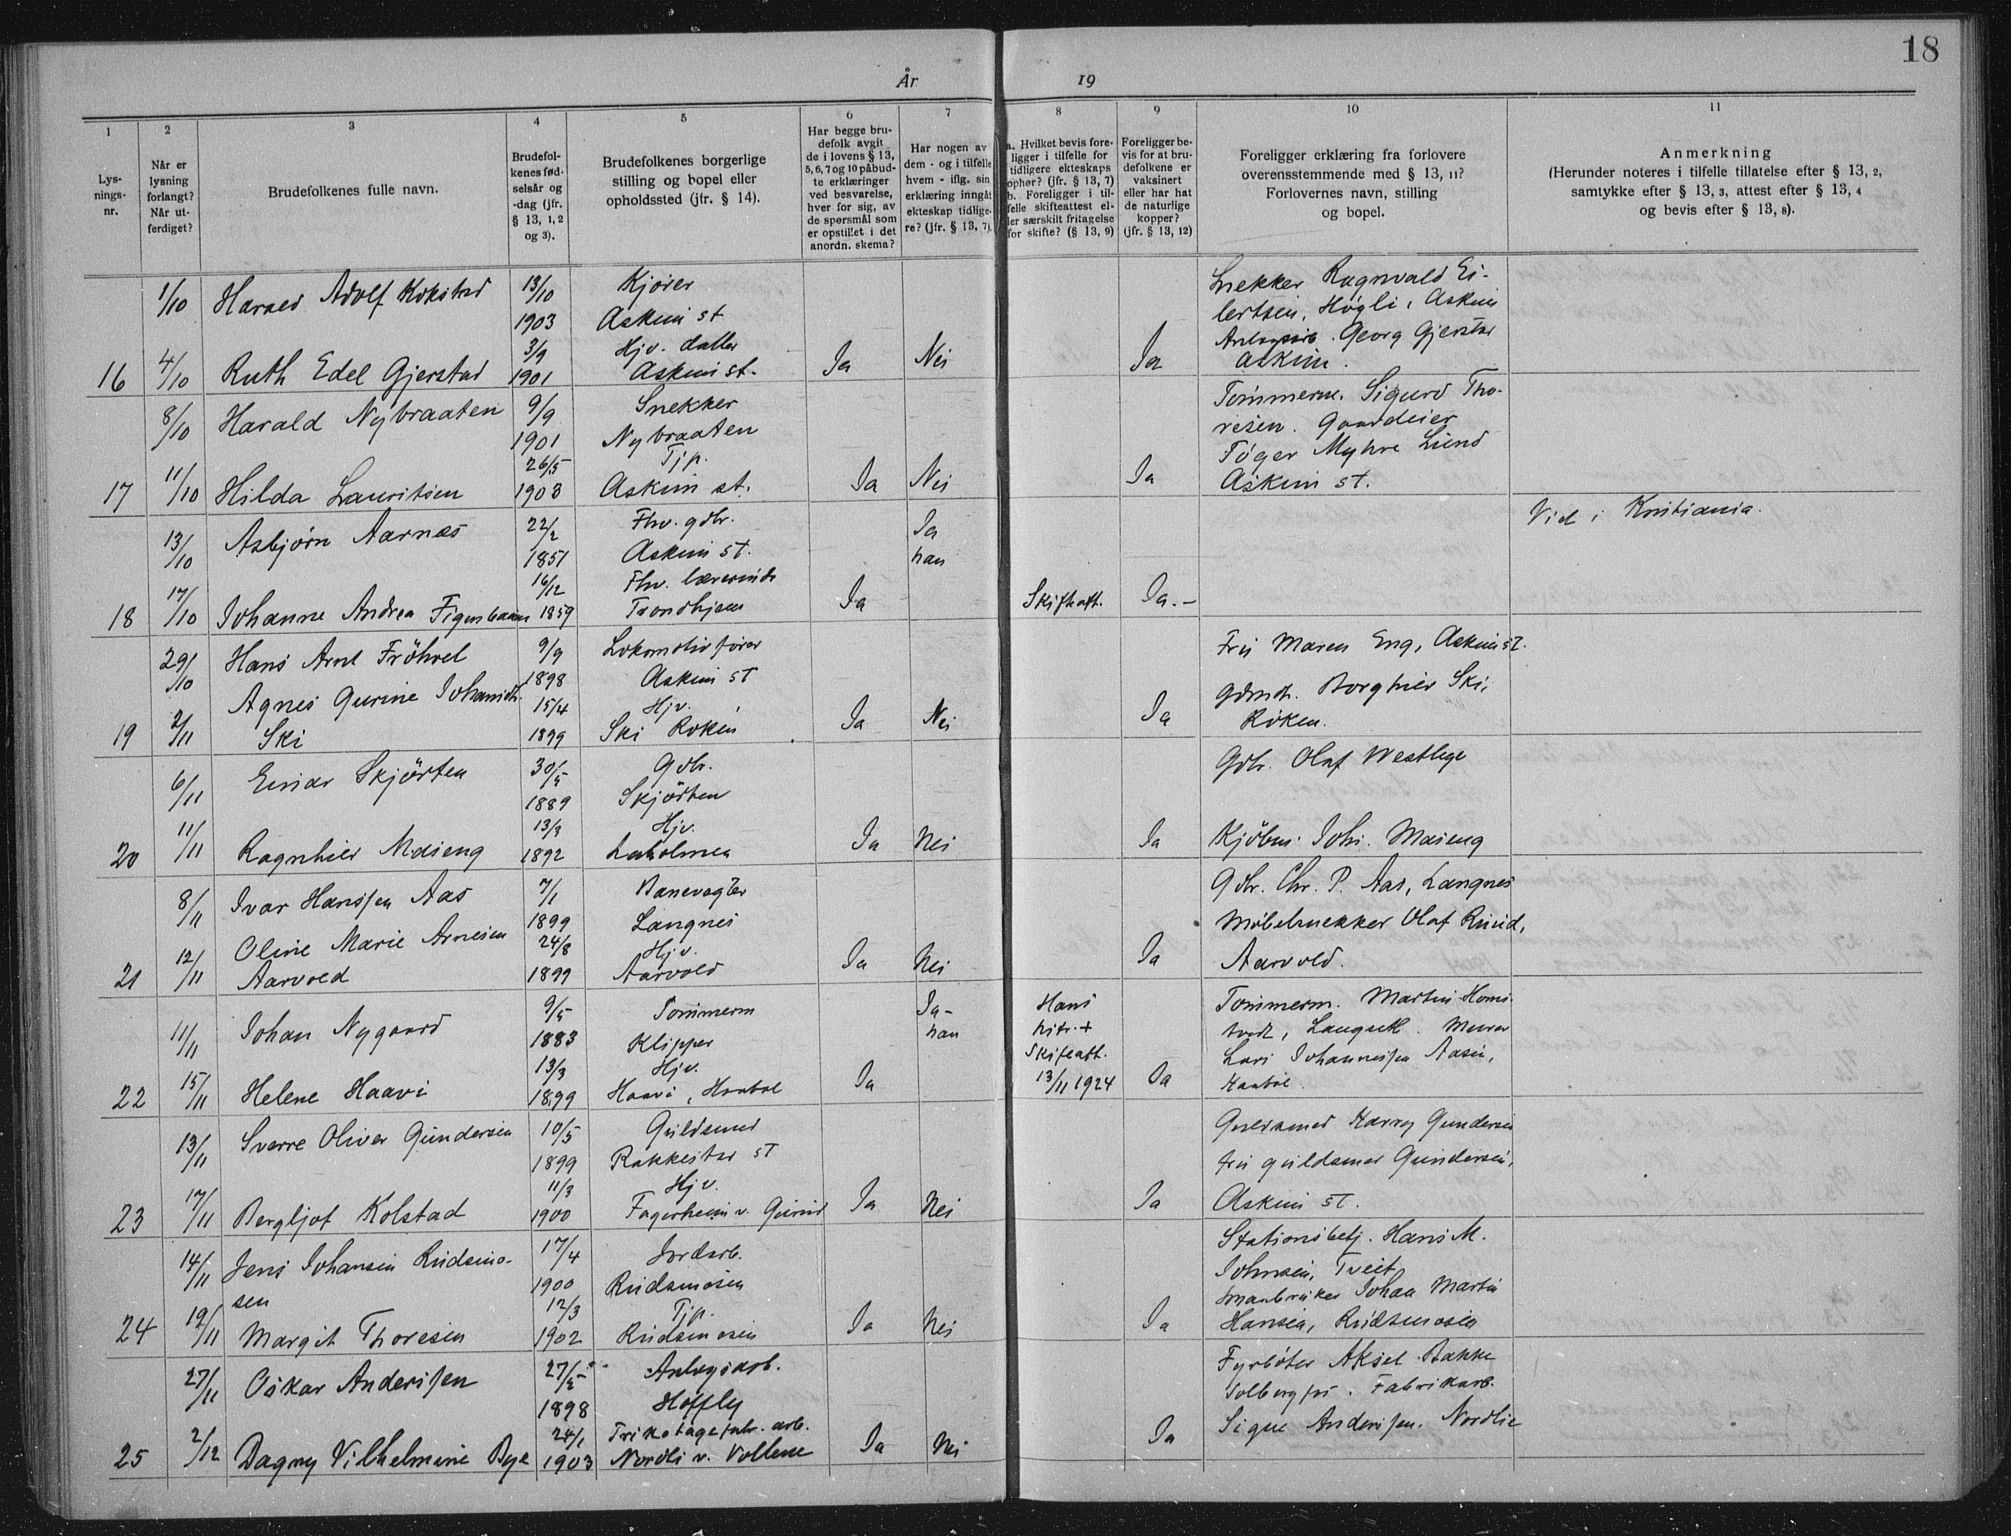 18
År
19
1
2
3
4
5
6
7
8
9
10
11
Lys-
nings-
nr.
Når er
lysning
forlangt?
Når ut-
ferdiget?
Brudefolkenes fulle navn.
Brudefol-
kenes fød-
selsår og
-dag (jfr.
§ 13, 1, 2
og 3).
Brudefolkenes borgerlige
stilling og bopel eller
opholdssted (jfr. § 14).
Har begge bru-
defolk avgit
de i lovens § 13,
5, 6, 7 og 10 påbud-
te erklæringer
ved besvarelse,
hver for sig, av
de spørsmål som
er opstillet i det
anordn. skema?
Har nogen av
dem - og i tilfelle
hvem - iflg. sin
erklæring inngåt
ekteskap tidlige-
re? (jfr. § 13, 7).
a. Hvilket bevis fore-
ligger i tilfelle for
tidligere ekteskaps
ophør? (jfr. § 13, 7)
b. Foreligger i til-
felle skifteattest el-
ler særskilt fritagelse
for skifte? (§ 13, 9)
Foreligger be-
vis for at bru-
defolkene er
vaksinert
eller har hat
de naturlige
kopper?
(jfr. § 13, 12)
Foreligger erklæring fra forlovere
overensstemmende med § 13, 11?
Forlovernes navn, stilling
og bopel.
Anmerkning
(Herunder noteres i tilfelle tillatelse efter § 13, 2,
samtykke efter § 13, 3, attest efter § 13, 4
og bevis efter § 13, 8).
1/10 Harald Adolf Kokstad 13/10 Kjører Snekker Ragnvald Ei-
1903 Askim st lertsen, Høgli, Askim
3/9 Hjv. datter Georg Gjerstad
16 4/10 Ruth Edel Gjerstad 1901 Askim st. Ja Nei Ja Askim.
8/10 Harald Nybraaten 9/9 Snekker Tømmerm. Sigurd Tho-
1901 Nybraaten resen. Gaardeier
26/5 Tjp. Myhre Lund
17 11/10 Hilda Lauritsen 1903 Askim st. Ja Nei Ja Askim st.
13/10 Asbjørn Aarnæs 22/2 Fhv. gdbr. Ja Vid i Kristiania.
1851 Askim st. han
16/12 Fhv. lærerinde
18 17/10 Johanne Andrea 1859 Trondhjem Ja Skifteatt. Ja.-
29/10 Hans Arnt Frøhvel 9/9 Lokomotivfører Fru Maren Eng, Askim st.
1898 Askim st
Agnes Gurine Johansdt. 15/4 Hjv. Gdmdt. Borghild Ski,
19 2/11 Ski 1899 Ski Røken Ja Nei Ja Røken.
6/11 Einar Skjørten 30/5 Gdbr. Gdbr. Olaf Westlege
1889 Skjørten
13/3 Hjv.
20 11/11 Ragnhild Maseng 1892 Ja Nei Ja Kjøbm. Johs. Maseng
8/11 Ivar Hanssen Aas 7/1 Banevogter Gdbr. Chr. P. Aas, Langnes
1899 Langnes Møbelsnekker Olaf Ruud,
Oline Marie Arnesen 24/8 Hjv.
21 12/11 Aarvold 1899 Aarvold Ja Nei Ja Aarvold.
11/11 Johan Nygaard 9/5 Tømmerm Ja- Hans Tømmerm. Martin Homs-
1883 Klipper han tvedt, Langset. Murer
13/3 Hjv. Skifteatt. Lars Johannessen Aasen,
22 15/11 Helene Haavi 1899 Haavi, Haabøl Ja 13/11 1924 Ja Haabøl.
13/11 Sverre Oliver Gundersen 10/5 Guldsmed Guldsmed Harry Gundersen
1899 Rakkestad st fru guldsmed Gundersen,
11/3 Hjv.
23 17/11 Bergljot Kolstad 1900 Fagerheim v. Ja Nei Ja Askim st.
14/11 Jens Johansen Rudsmo- 17/4 Jordarb. Stationsbetj. Hans M.
sen 1900 Rudsmosen Johnsen, Tveit
12/3 Tjp. Smaabruker Johan Martin
24 19/11 Margit Thoresen 1902 Rudsmosen Ja Nei Ja Hansen, Rudsmosen
27/11 Oskar Anderssen 27/5 Anlægsarb. Fyrbøter Aksel Bakke
1898 Høffly Solbergfos. Fabrikarb.
24/1 Trikotagefabr. arb. Signe Anderssen. Nordlie
25 2/12 Dagny Vilhelmine Bye 1903 Nordli v. Vollene Ja Nei Ja